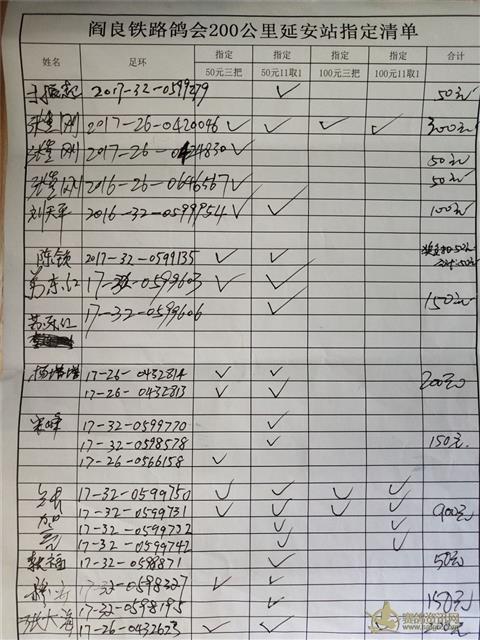 阎良铁路鸽会200公里延安站指定清单
姓名 足环 指定 指定 指定 指定 合计
50元三把 50元11取1 100元三把 100元11取1
2017-32-0599279 ✓ 50元
2017-26-0420096 ✓ ✓ ✓ ✓ 300元
2017-26-0424830 ✓ 50元
2016-26-0646567 ✓ 50元
刘天平 2016-32-0599954 ✓ ✓ 100元
陈锁 2017-32-0599135 ✓ ✓
苏东红 17-32-0599603 ✓ ✓ 150元
苏东红 17-32-0599606 ✓
杨增增 17-26-0432814 ✓ ✓ 200元
17-26-0432813 ✓ ✓
宋峰 17-32-0599770 ✓
17-32-0598578 ✓ 150元
17-26-0566158 ✓
17-32-0599750 ✓ ✓ ✓ ✓
17-32-0599731 ✓ ✓ ✓ ✓ 900元
17-32-0599732 ✓ ✓
17-32-0599742 ✓ ✓
17-32-0598871 ✓ 50元
17-32-0598327 ✓ ✓
17-32-0598195 ✓ 150元
17-26-0432623 ✓ ✓
赛鸽资讯网